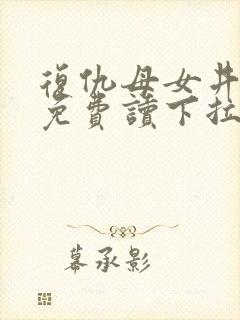 復仇母女丼
免費讀下拉
幕承影